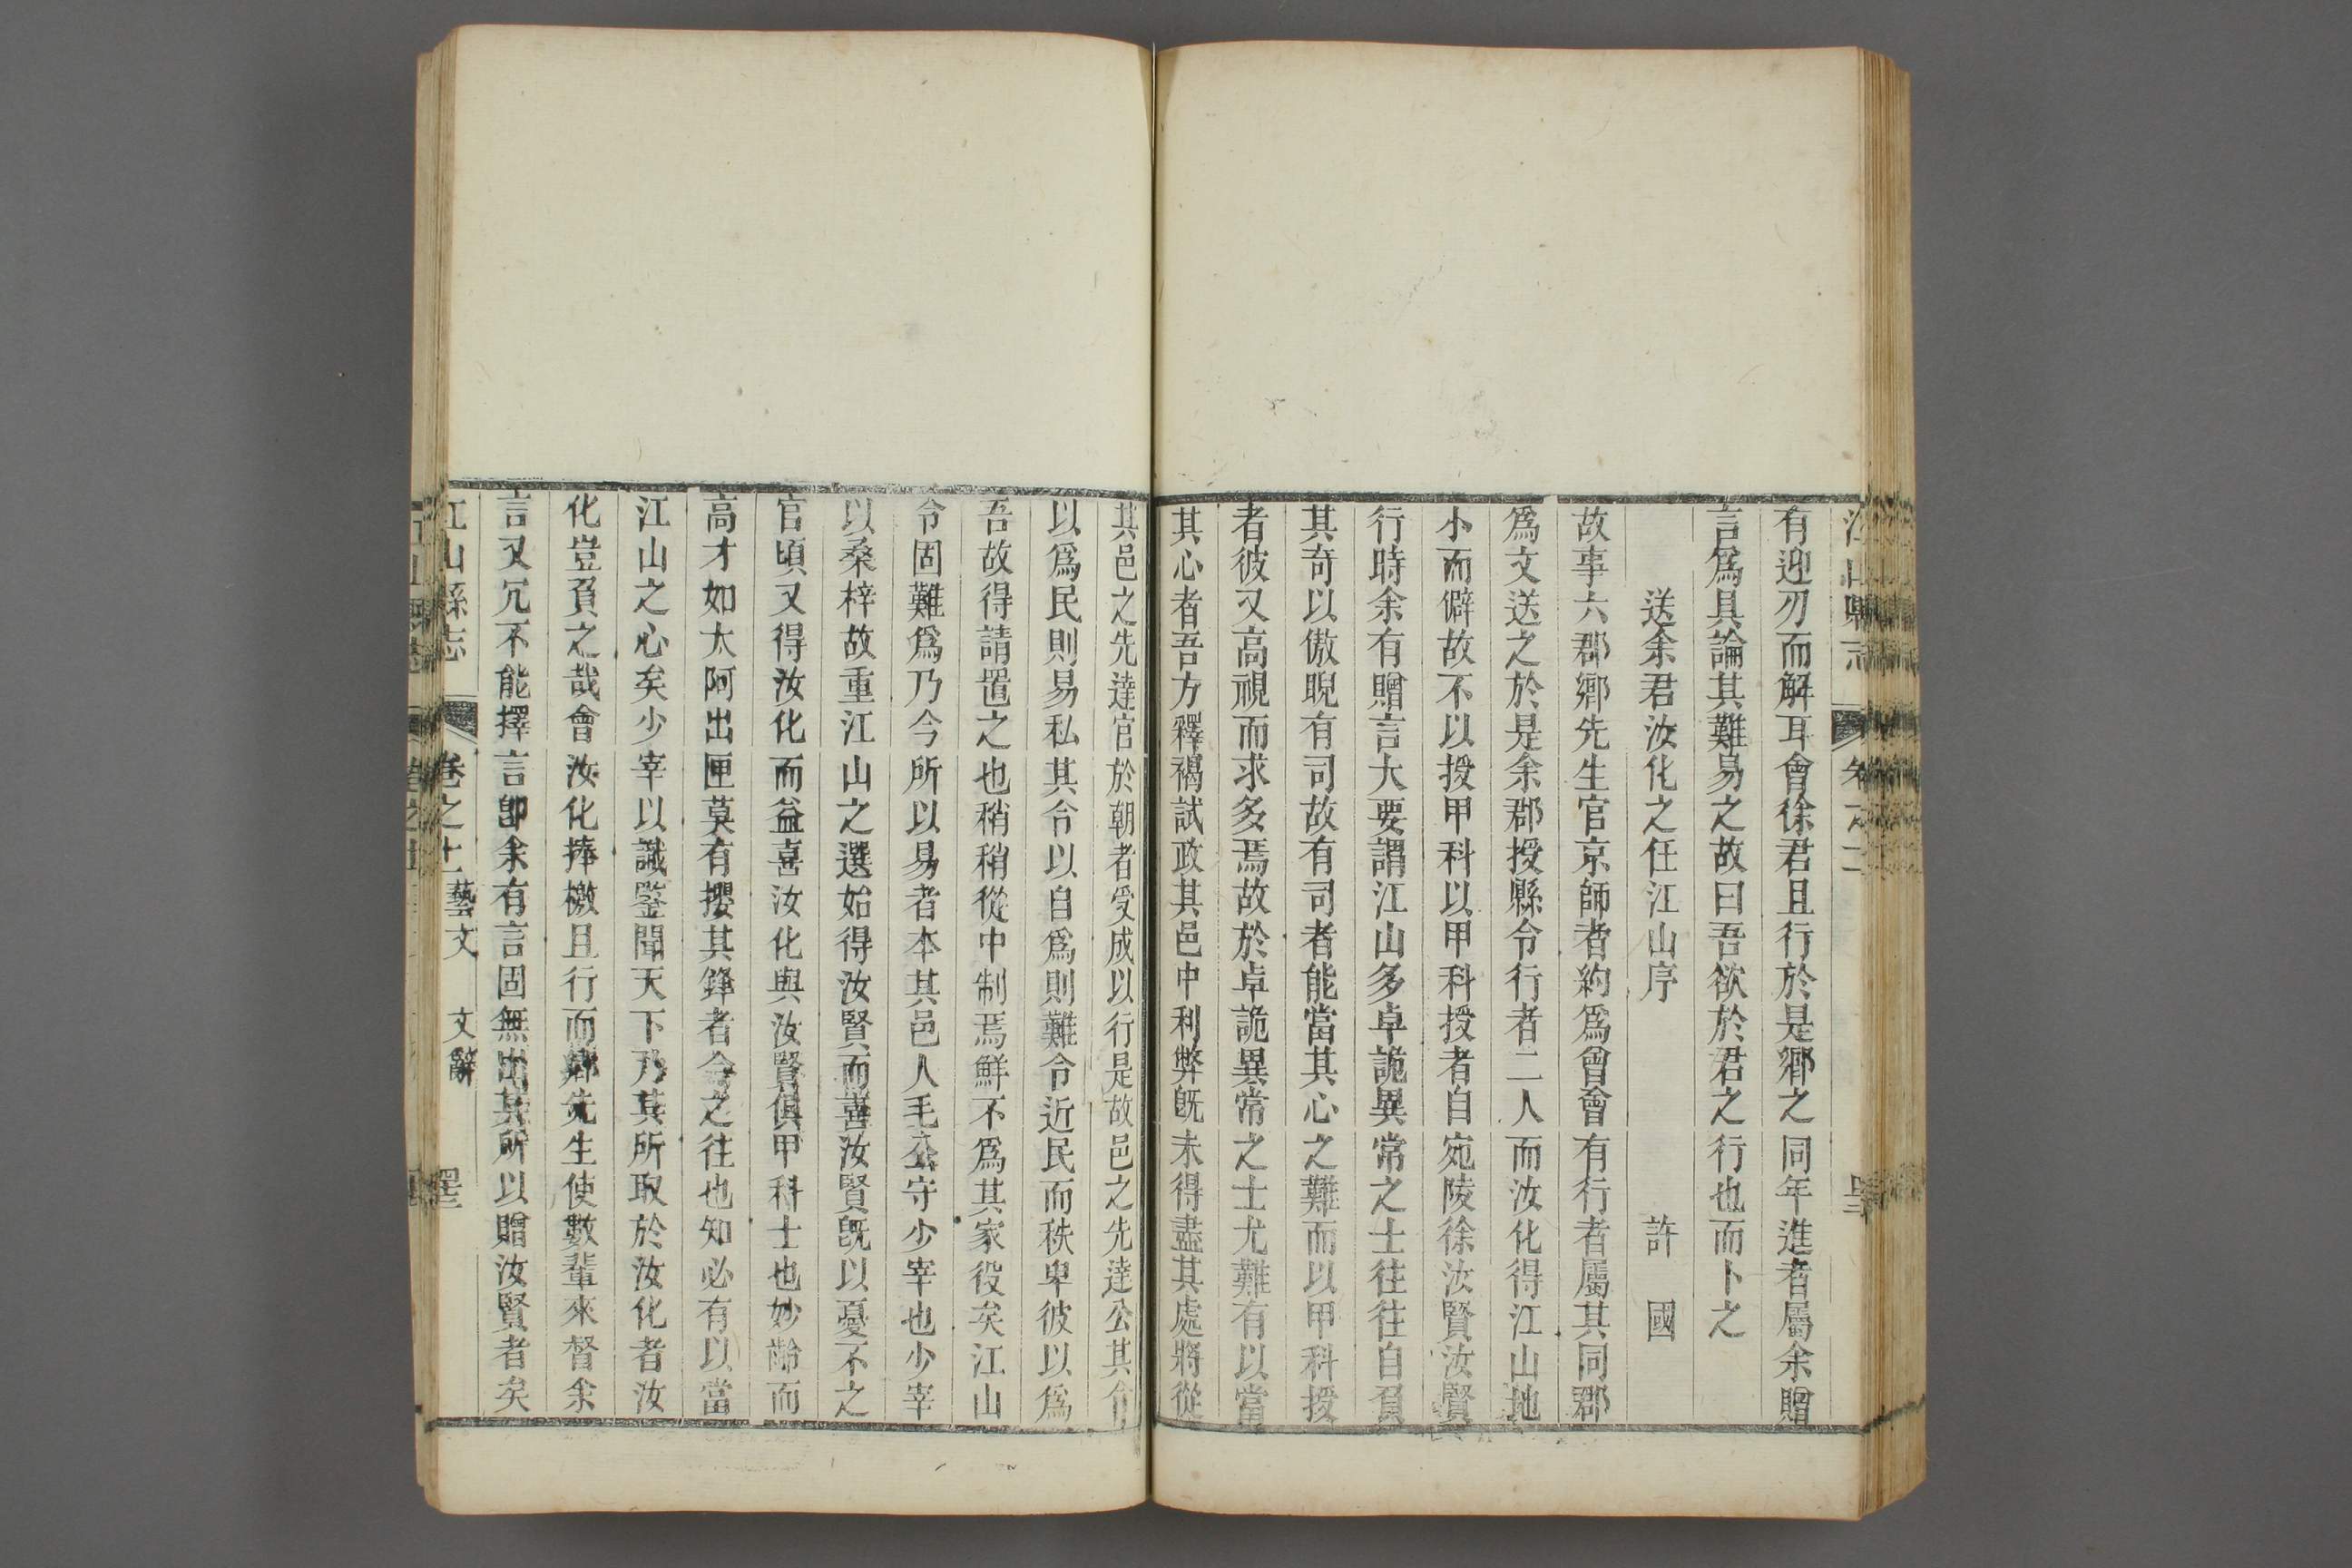 有迎刃而解耳會徐君且行於是鄉之同年進者屬余贈
言爲具論其難易之故曰吾欲於君之行也而卜之
送余君汝化之任江山序　許　國
故事六郡鄉先生官京師者約爲會會有行者屬其同郡
爲文送之於是余郡授縣令行者二人而汝化得江山地
小而僻故不以授甲科以甲科授者自宛陵徐汝賢汝賢
行時余有贈言大要謂江山多卓詭異常之士往往自負
其奇以傲睨有司故有司者能當其心之難而以甲科授
者彼又高視而求多焉故於卓詭異常之士尤難有以當
其心者吾方釋褐試政其邑中利弊旣未得盡其處將從
其邑之先達官於朝者受成以行是故邑之先達公其令
以爲民則易私其令以自爲則難令近民而秩卑彼以爲
吾故得請置之也稍稍從中制焉鮮不爲其家役矣江山
令固難爲乃今所以易者本其邑人毛公守少宰也少宰
以桑梓故重江山之選始得汝賢而喜汝賢旣以憂不之
官頃又得汝化而益喜汝化與汝賢俱甲科士也妙齡而
高才如太阿出匣莫有攖其鋒者今之往也知必有以當
江山之心矣少宰以識鑒聞天下乃其所取於汝化者汝
化豈負之哉會汝化捧檄且行而鄉先生使數輩來督余
言又冗不能擇言卽余有言固無出其所以贈汝賢者矣
江山縣志　卷之十一　藝文　文辭